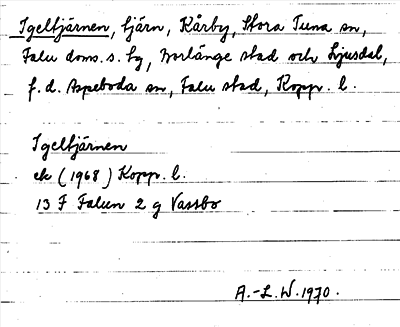 Igeltjärnen, tjärn, Kårby, Stora Tuna sn,
Falu doms. s. tg, Borlänge stad och Ljusdal,
f. d. Aspeboda sn, Falu stad, Kopp. l.
Igeltjärnen
ek (1968) Kopp. l.
13 F Falun 2 g Vassbo
A.-L. W. 1970.